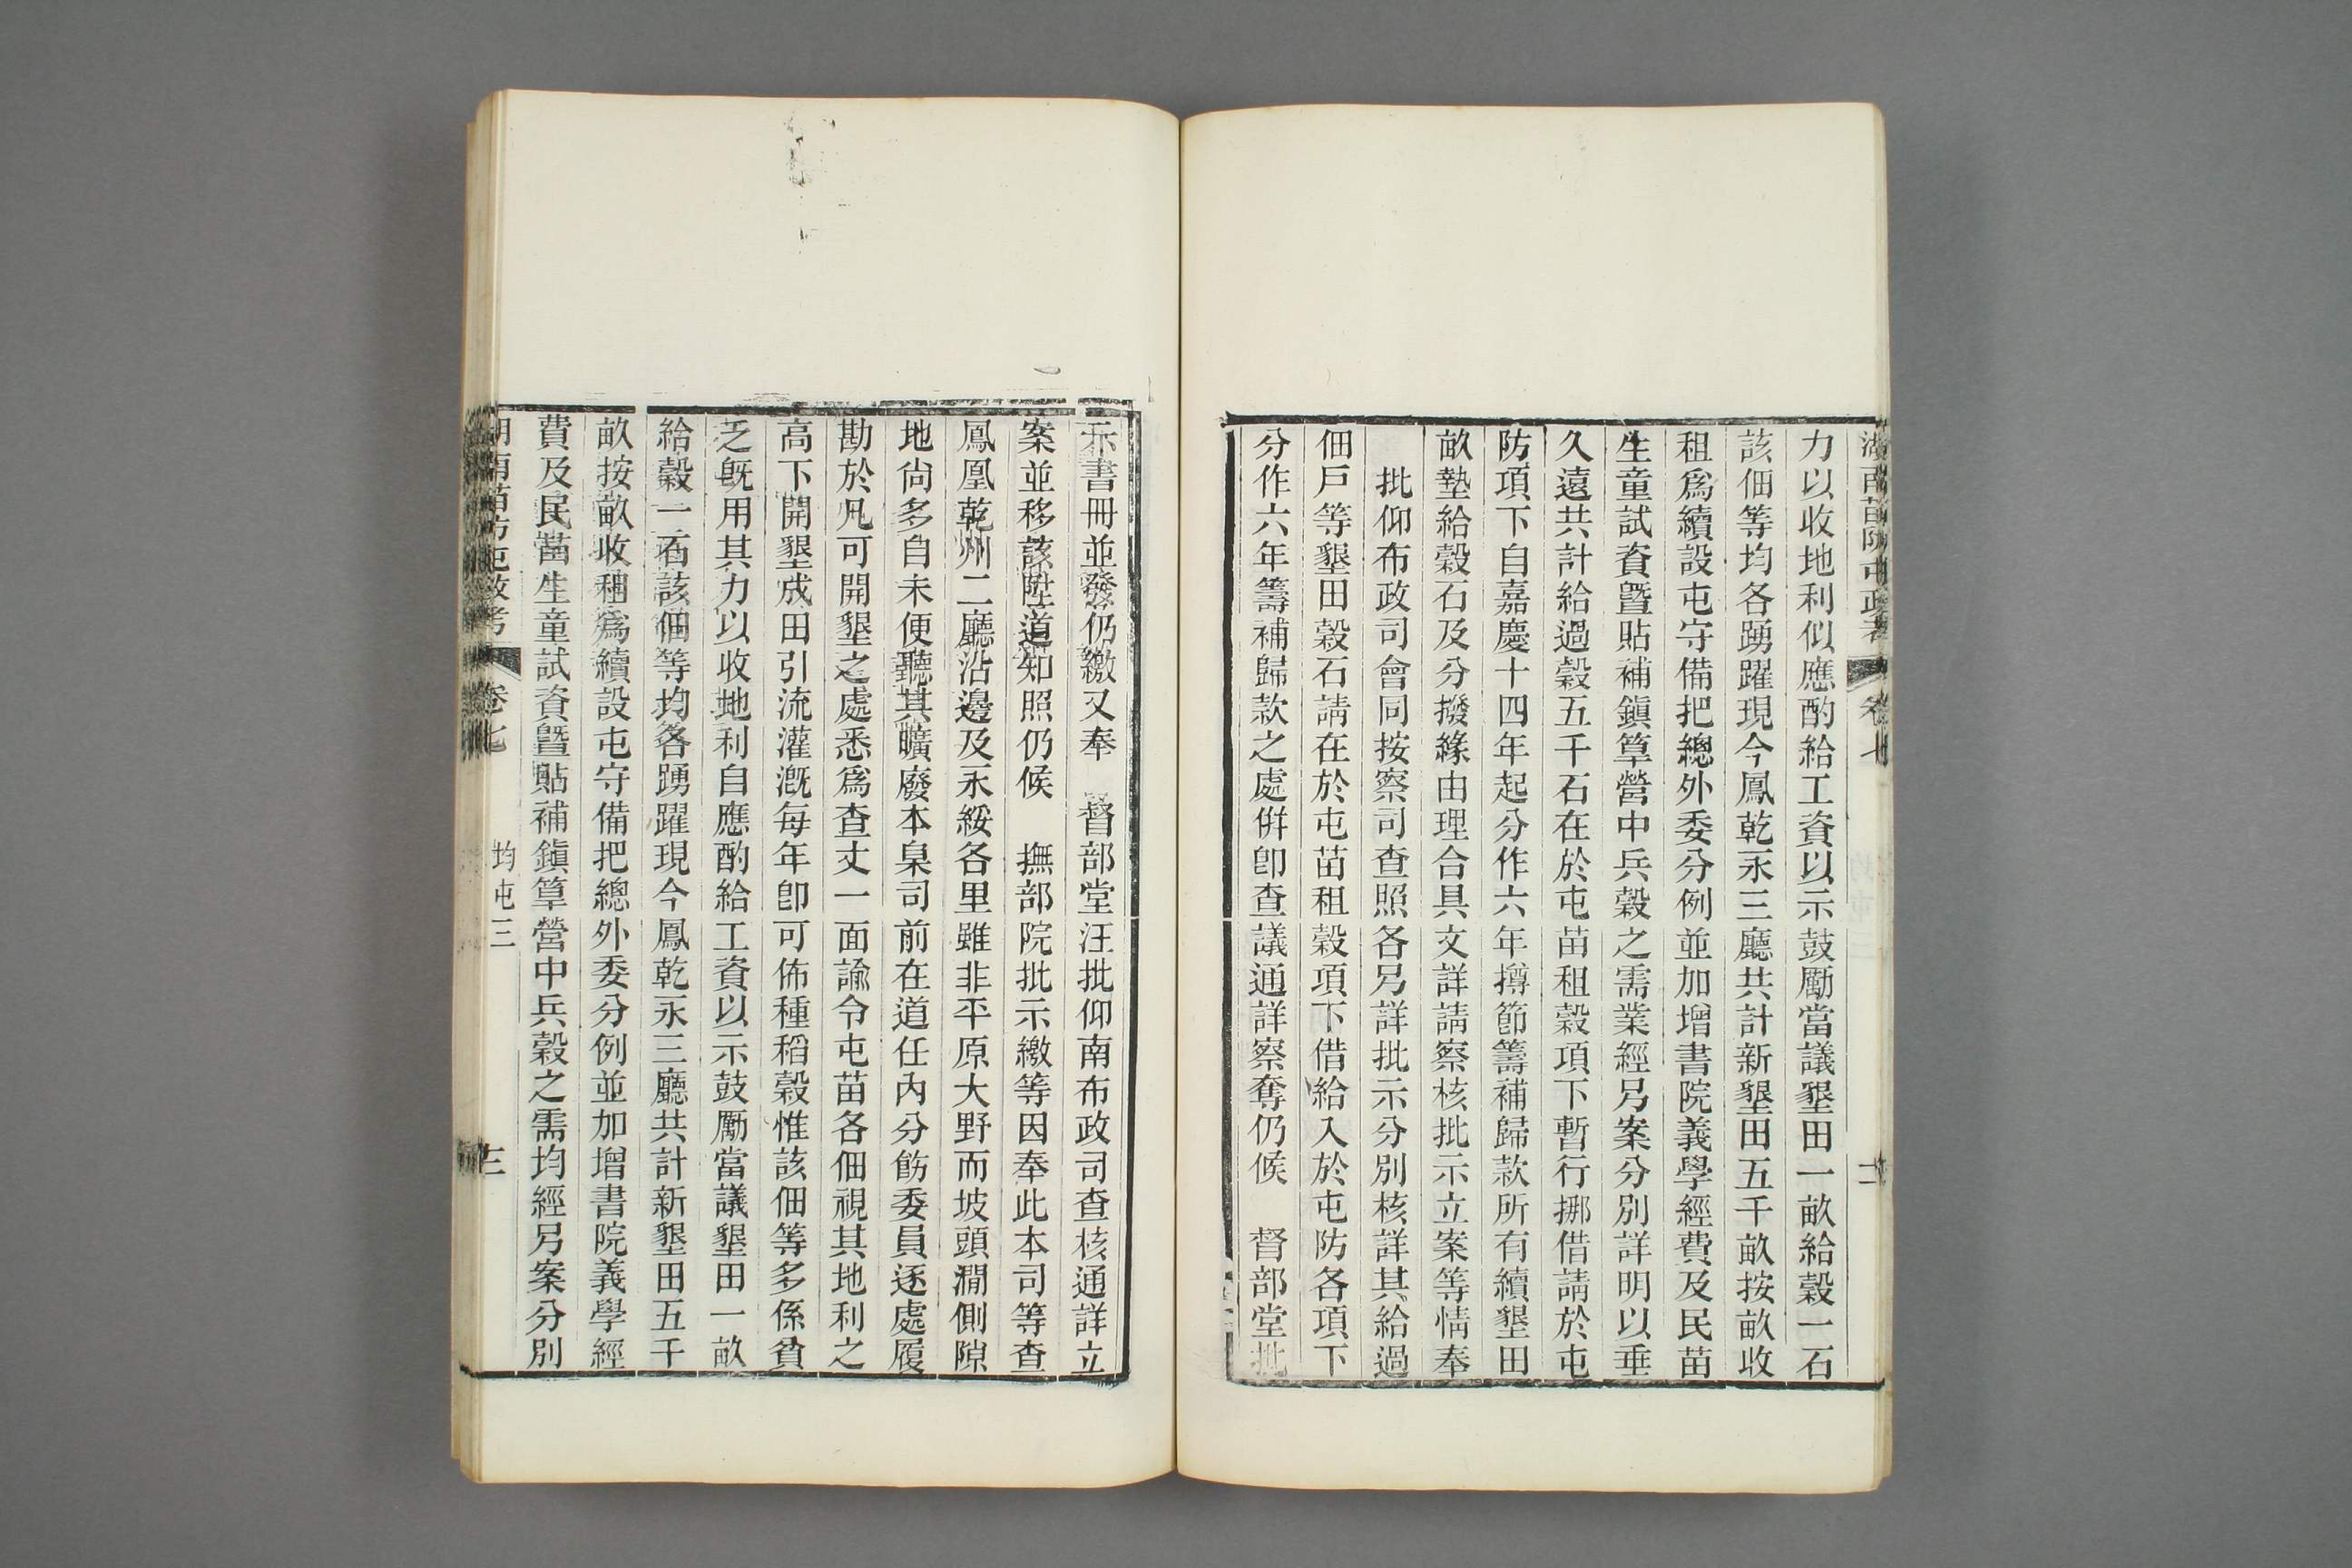 湖南苗防屯政考 卷七 二
力以收地利似應酌給工資以示鼓勵當議墾田一畝給穀一石
該佃等均各踴躍現今鳳乾永三廳共計新墾田五千畝按畝收
租爲續設屯守備把總外委分例並加增書院義學經費及民苗
生童試資曁貼補鎭筸營中兵穀之需業經另案分別詳明以垂
久遠共計給過穀五千石在於屯苗租穀項下暫行挪借請於屯
防項下自嘉慶十四年起分作六年撙節籌補歸款所有續墾田
畝墊給穀石及分撥緣由理合具文詳請察核批示立案等情奉
批仰布政司會同按察司查照各另詳批示分別核詳其給過
佃戶等墾田穀石請在於屯苗租穀項下借給入於屯防各項下
分作六年籌補歸款之處倂卽查議通詳察奪仍候 督部堂批
示書冊並發仍繳又奉 督部堂汪批仰南布政司查核通詳立
案並移該陞道知照仍候 撫部院批示繳等因奉此本司等查
鳳凰乾州二廳沿邊及永綏各里雖非平原大野而坡頭澗側隙
地尙多自未便聽其曠廢本臬司前在道任內分飭委員逐處履
勘於凡可開墾之處悉爲查丈一面諭令屯苗各佃視其地利之
高下開墾成田引流灌漑每年卽可佈種稻穀惟該佃等多係貧
乏旣用其力以收地利自應酌給工資以示鼓勵當議墾田一畝
給穀一石該佃等均各踴躍現今鳳乾永三廳共計新墾田五千
畝按畝收租爲續設屯守備把總外委分例並加增書院義學經
費及民苗生童試資曁貼補鎭筸營中兵穀之需均經另案分別
湖南苗防屯政考 卷七 均屯三 三